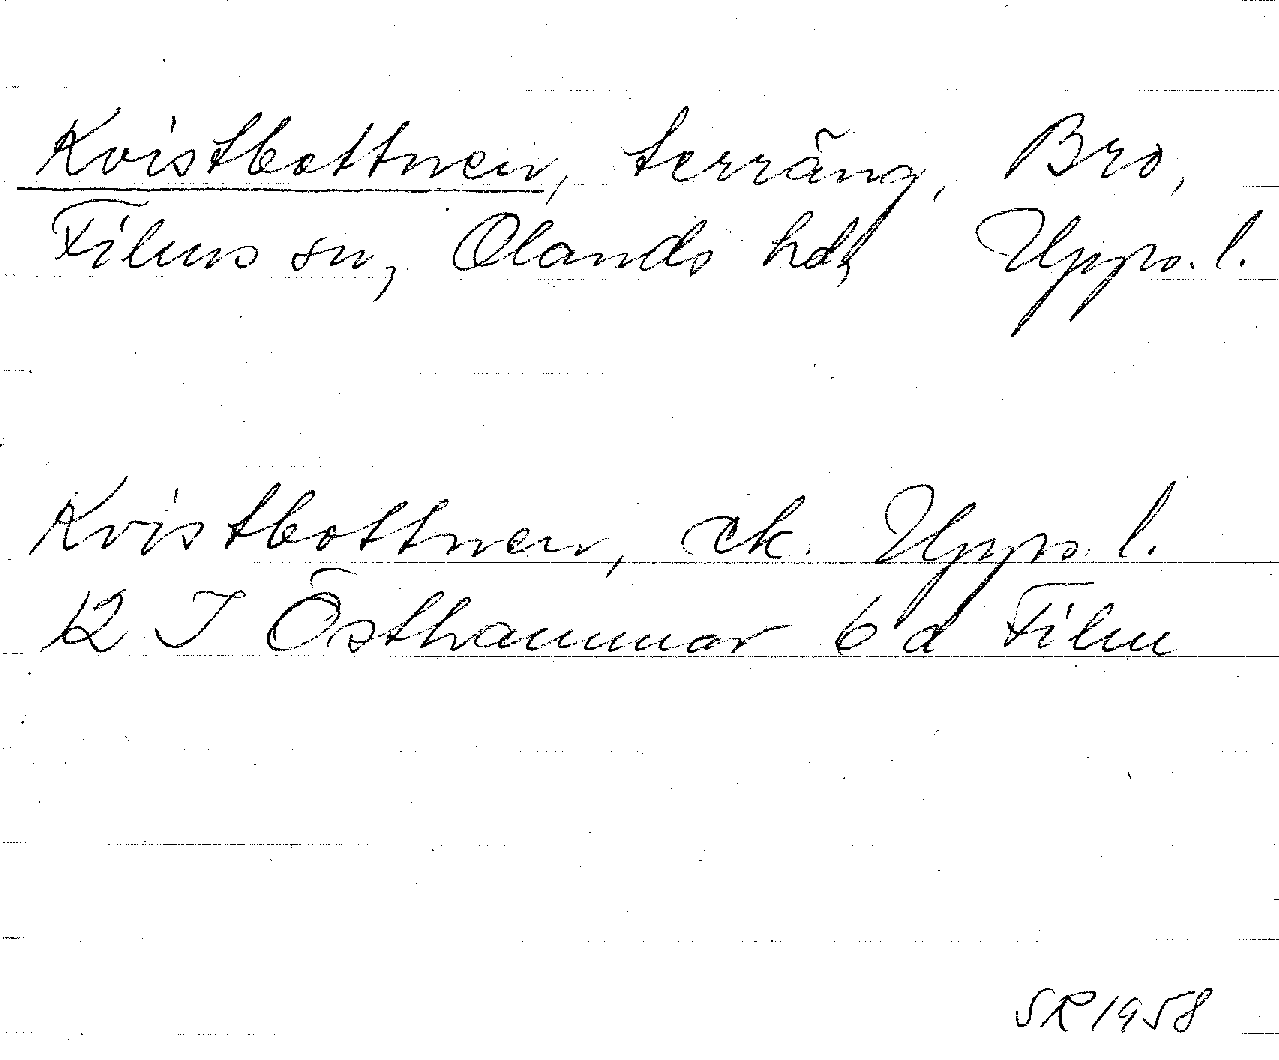 Kvistbottnen, terräng, Bro,
Films sn, Olands hd, Upps. l.
Kvistbottnen, ek. Upps. l.
12 I Östhammar 6 d Film
SR 1958